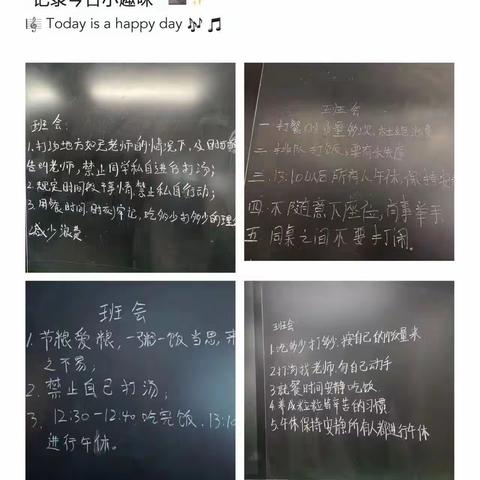 记录今日小趣味
Today is a happy day
班会:
1.打汤地方如无老师的情况下,及时
告叫老师,禁止同学私自进行打汤;
2.规定时间做事情禁止私自行动;
3.用餐时间,时刻牢记,吃多少打多少的理
减少浪费.
班班会
一
二 排队打饭,要有
三.13:10以后所有人午休,保持安
四 不随意下座位,有事举手.
五 同桌之间不要打闹.
班会
1.节粮爱粮,一粥一饭当思,来
之不易;
2.禁止自己打汤;
3. 12:30-12:40吃完饭,13:10
进行午休.
班会
1.吃多少打多少.按自己的饭量来
2.打汤找老师,勿自己动手
3.就餐时间安静吃饭.
4.养成粒粒皆辛苦的习惯
5.午休保持安静所有人都进行午休